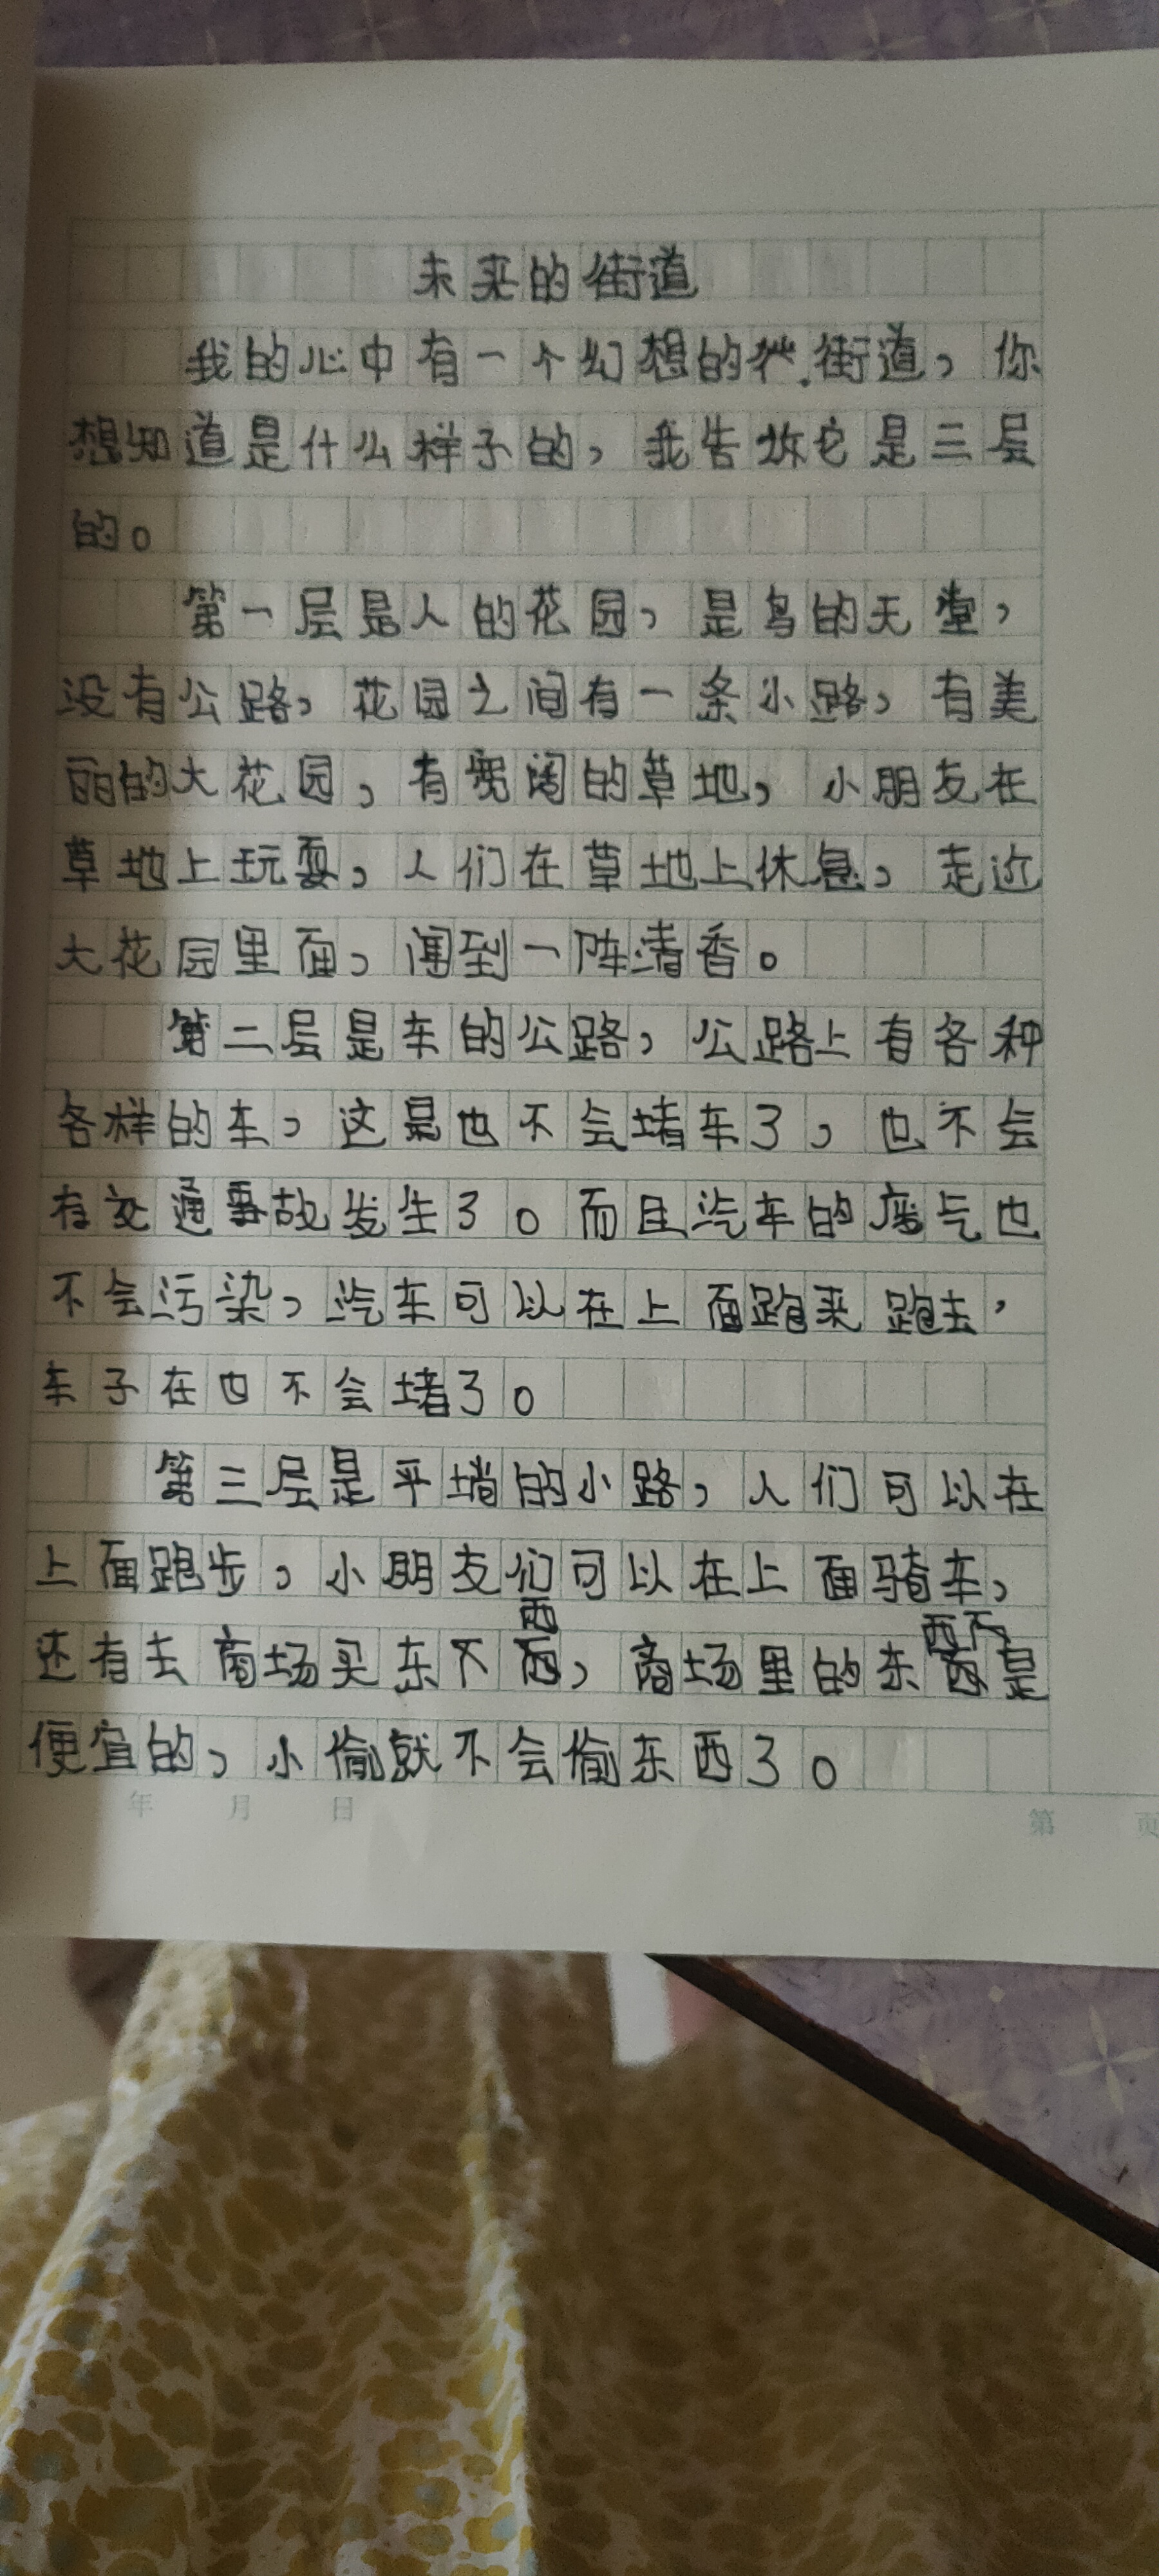 未来的街道
我的心中有一个幻想的街道，你
想知道是什么样子的，我告诉它是三层
的。
第一层是人的花园，是鸟的天堂，
没有公路，花园之间有一条小路，有美
丽的大花园，有宽阔的草地，小朋友在
草地上玩耍，人们在草地上休息，走近
大花园里面，闻到一阵清香。
第二层是车的公路，公路上有各种
各样的车，这是也不会堵车了，也不会
有交通事故发生了。而且汽车的废气也
不会污染，汽车可以在上面跑来跑去，
车子在也不会堵了。
第三层是平坦的小路，人们可以在
上面跑步，小朋友们可以在上面骑车，
还有去商场买东西，商场里的东西是
便宜的，小偷就不会偷东西了。
年 月 日
第 页